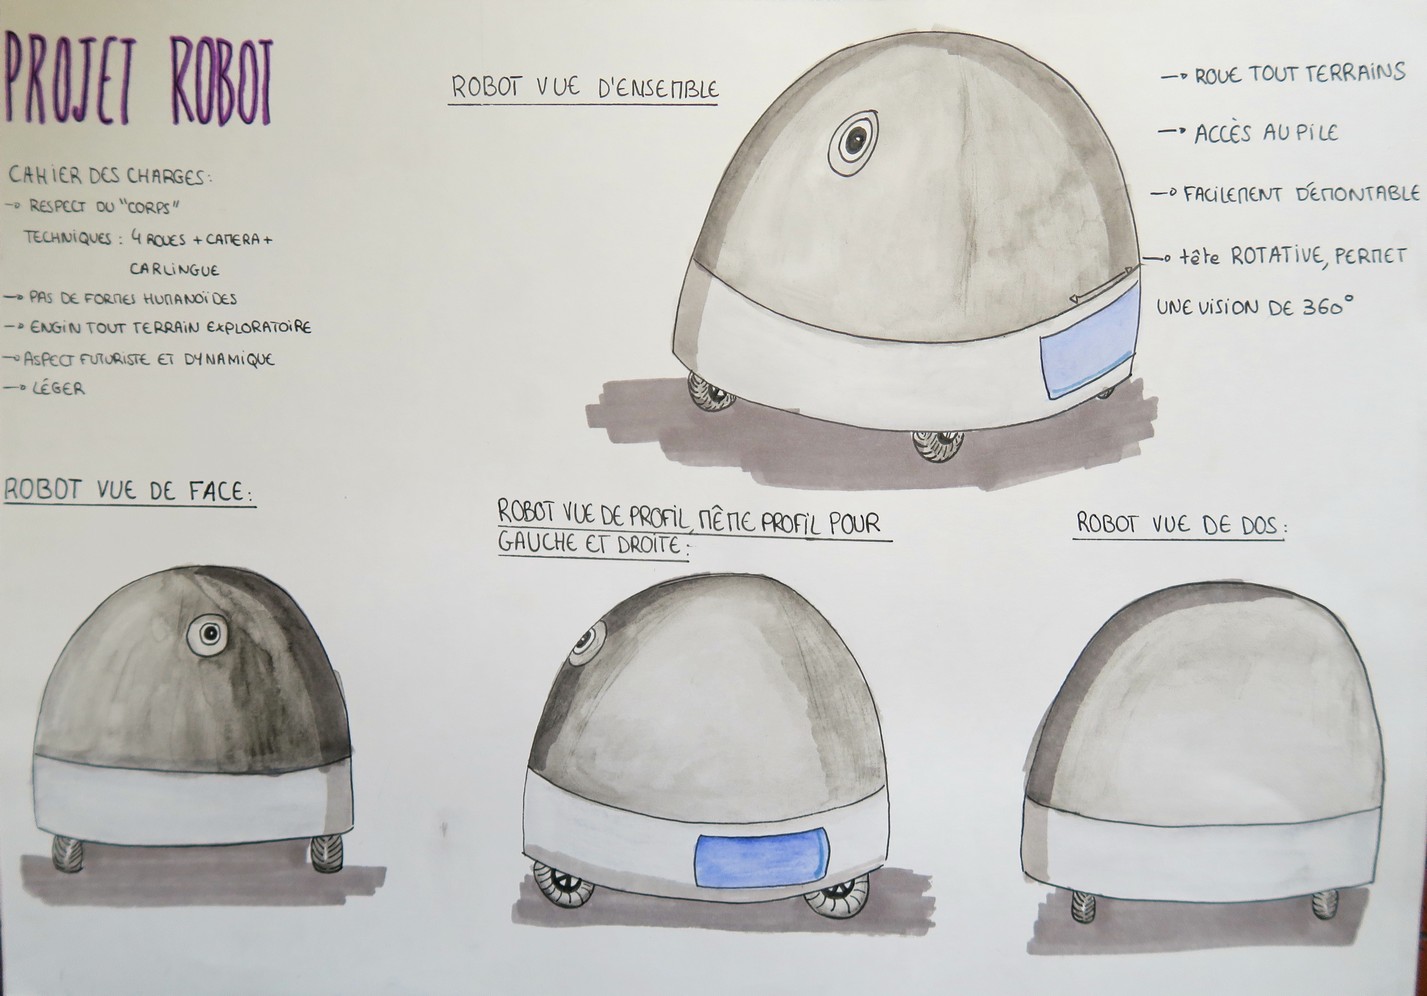 PROJET ROBOT
CAHIER DES CHARGES:
→ RESPECT DU "CORPS"
TECHNIQUES : 4 ROUES + CAMERA +
CARLINGUE
→ PAS DE FORMES HUMANOÏDES
→ ENGIN TOUT TERRAIN EXPLORATOIRE
→ ASPECT FUTURISTE ET DYNAMIQUE
→ LÉGER
ROBOT VUE D'ENSEMBLE
→ ROUE TOUT TERRAINS
→ ACCÈS AU PILE
→ FACILEMENT DÉMONTABLE
→ tête ROTATIVE, PERMET
UNE VISION DE 360°
ROBOT VUE DE FACE:
ROBOT VUE DE PROFIL, MÊME PROFIL POUR
GAUCHE ET DROITE:
ROBOT VUE DE DOS: